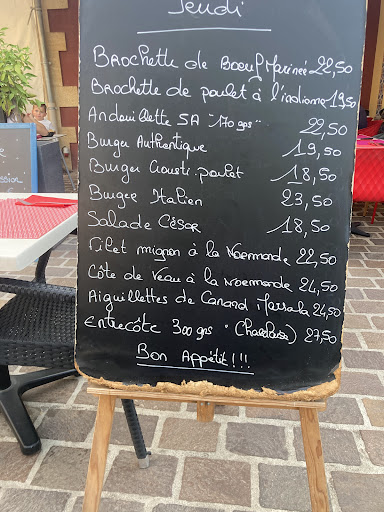 Jeudi
Brochette de Boeuf Mariné 22,50
Brochette de poulet à l'indienne 19,50
Andouillette 5A "170 grs" 22,50
Burger Authentique 19,50
Burger Crousti poulet 18,50
Burger Italien 23,50
Salade César 18,50
Filet mignon à la Normande 22,50
Côte de Veau à la Normande 24,50
Aiguillettes de Canard Marsala 24,50
Entrecôte 300 grs " (Charolaise) 27,50
Bon Appétit!!!